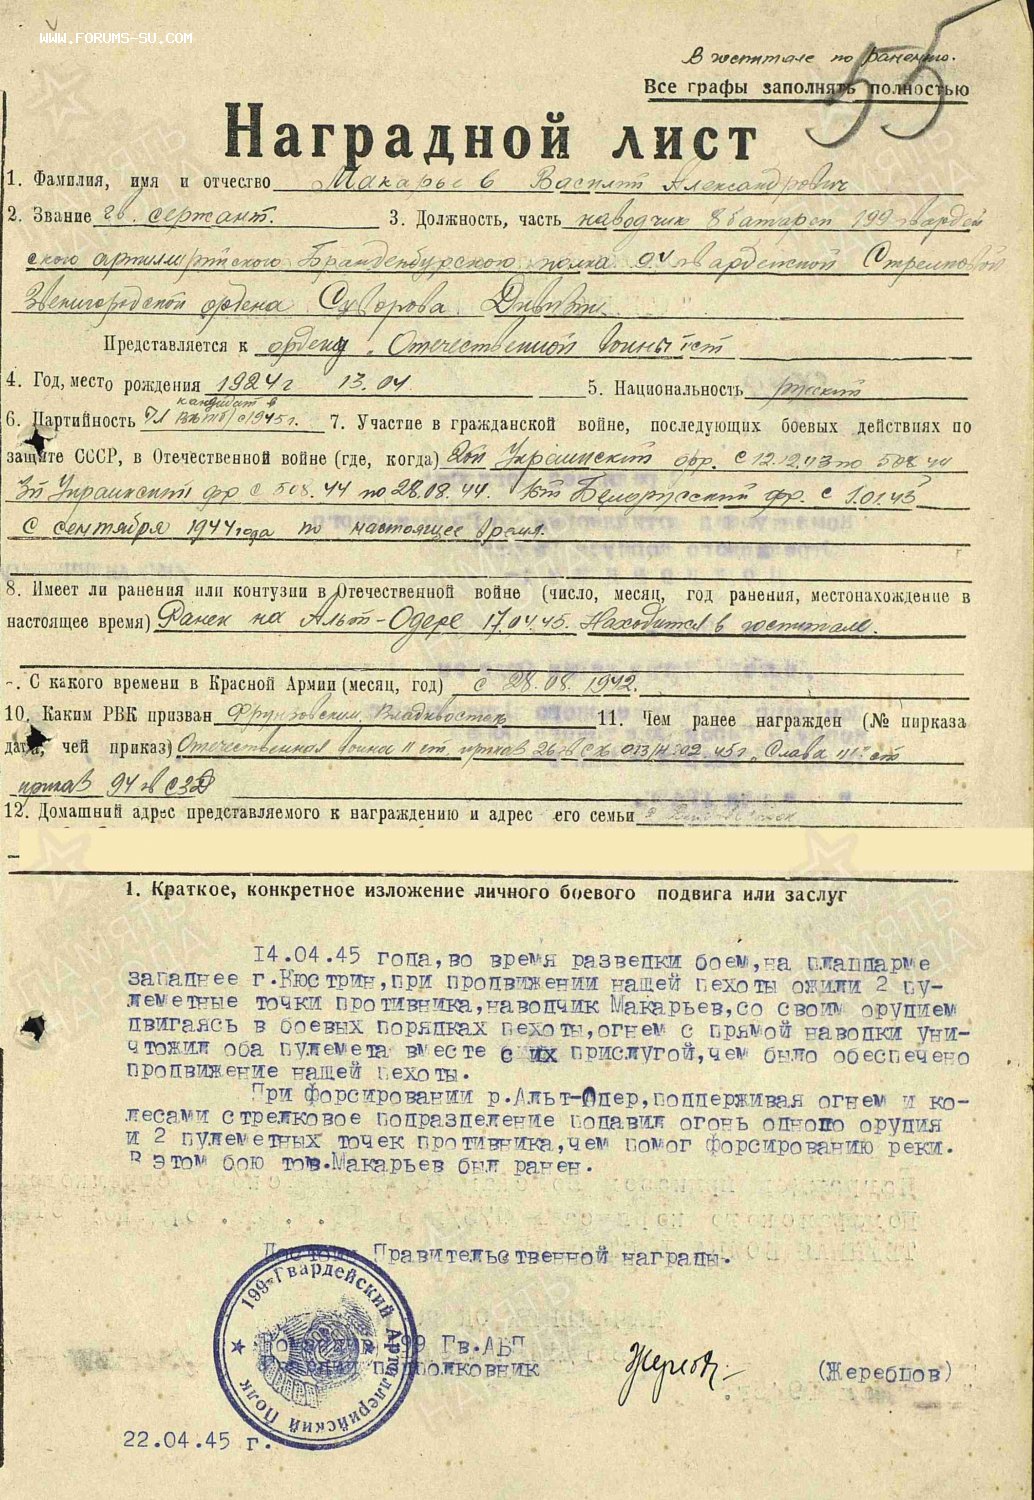 WWW.FORUMS-SU.COM
В госпитале по ранению.
55
Все графы заполнять полностью
Наградной лист
1. Фамилия, имя и отчество Макарьев Василий Александрович
2. Звание гв. сержант. 3. Должность, часть наводчик 8 батареи 199 гвардей
ского артиллерийского Бранденбургского полка 94 гвардейской Стрелковой
Звенигородской ордена Суворова Дивизии
Представляется к ордену „Отечественной войны" ıст
4. Год, место рождения 1924 г 13.04. 5. Национальность русский
кандидат в
6. Партийность ЧЛ ВКП(б) с 1945 г. 7. Участие в гражданской войне, последующих боевых действиях по
защите СССР, в Отечественной войне (где, когда) 2ой Украинский фр. с 12.12.43 по 5.08.44
3й Украинский фр с 5.08.44 по 28.08.44. 1ый Белорусский фр. с 1.01.45
с сентября 1944 года по настоящее время.
8. Имеет ли ранения или контузии в Отечественной войне (число, месяц, год ранения, местонахождение в
настоящее время) Ранен на Альт-Одере 17.04.45. Находится в госпитале.
. С какого времени в Красной Армии (месяц, год) с 28.08.1942.
10. Каким РВК призван Фрунзовским Владивосток 11. Чем ранее награжден (№ приказа
дата, чей приказ) Отечественная война II ст. приказ 26 гв СК 013/н 02 45 г. „Слава III" ст
приказ 94 гв СЗД
12. Домашний адрес представляемого к награждению и адрес его семьи
1. Краткое, конкретное изложение личного боевого подвига или заслуг
14.04.45 года, во время разведки боем, на плацдарме
западнее г.Кюстрин, при продвижении нащей пехоты ожили 2 пу-
леметные точки противника, наводчик Макарьев, со своим орудием
двигаясь в боевых порядках пехоты, огнем с прямой наводки уни-
чтожил оба пулемета вместе с их прислугой, чем было обеспечено
продвижение нащей пехоты.
При форсировании р.Альт-Одер, поддерживая огнем и ко-
лесами стрелковое подразделение подавил огонь одного орудия
и 2 пулеметных точек противника, чем помог форсированию реки.
В этом бою тов.Макарьев был ранен.
Достоин Правительственной награды.
199-Гвардейский Артиллерийский Полк
Командир 199 Гв.АБП
Гвардии подполковник (Жеребцов)
22.04.45 г.